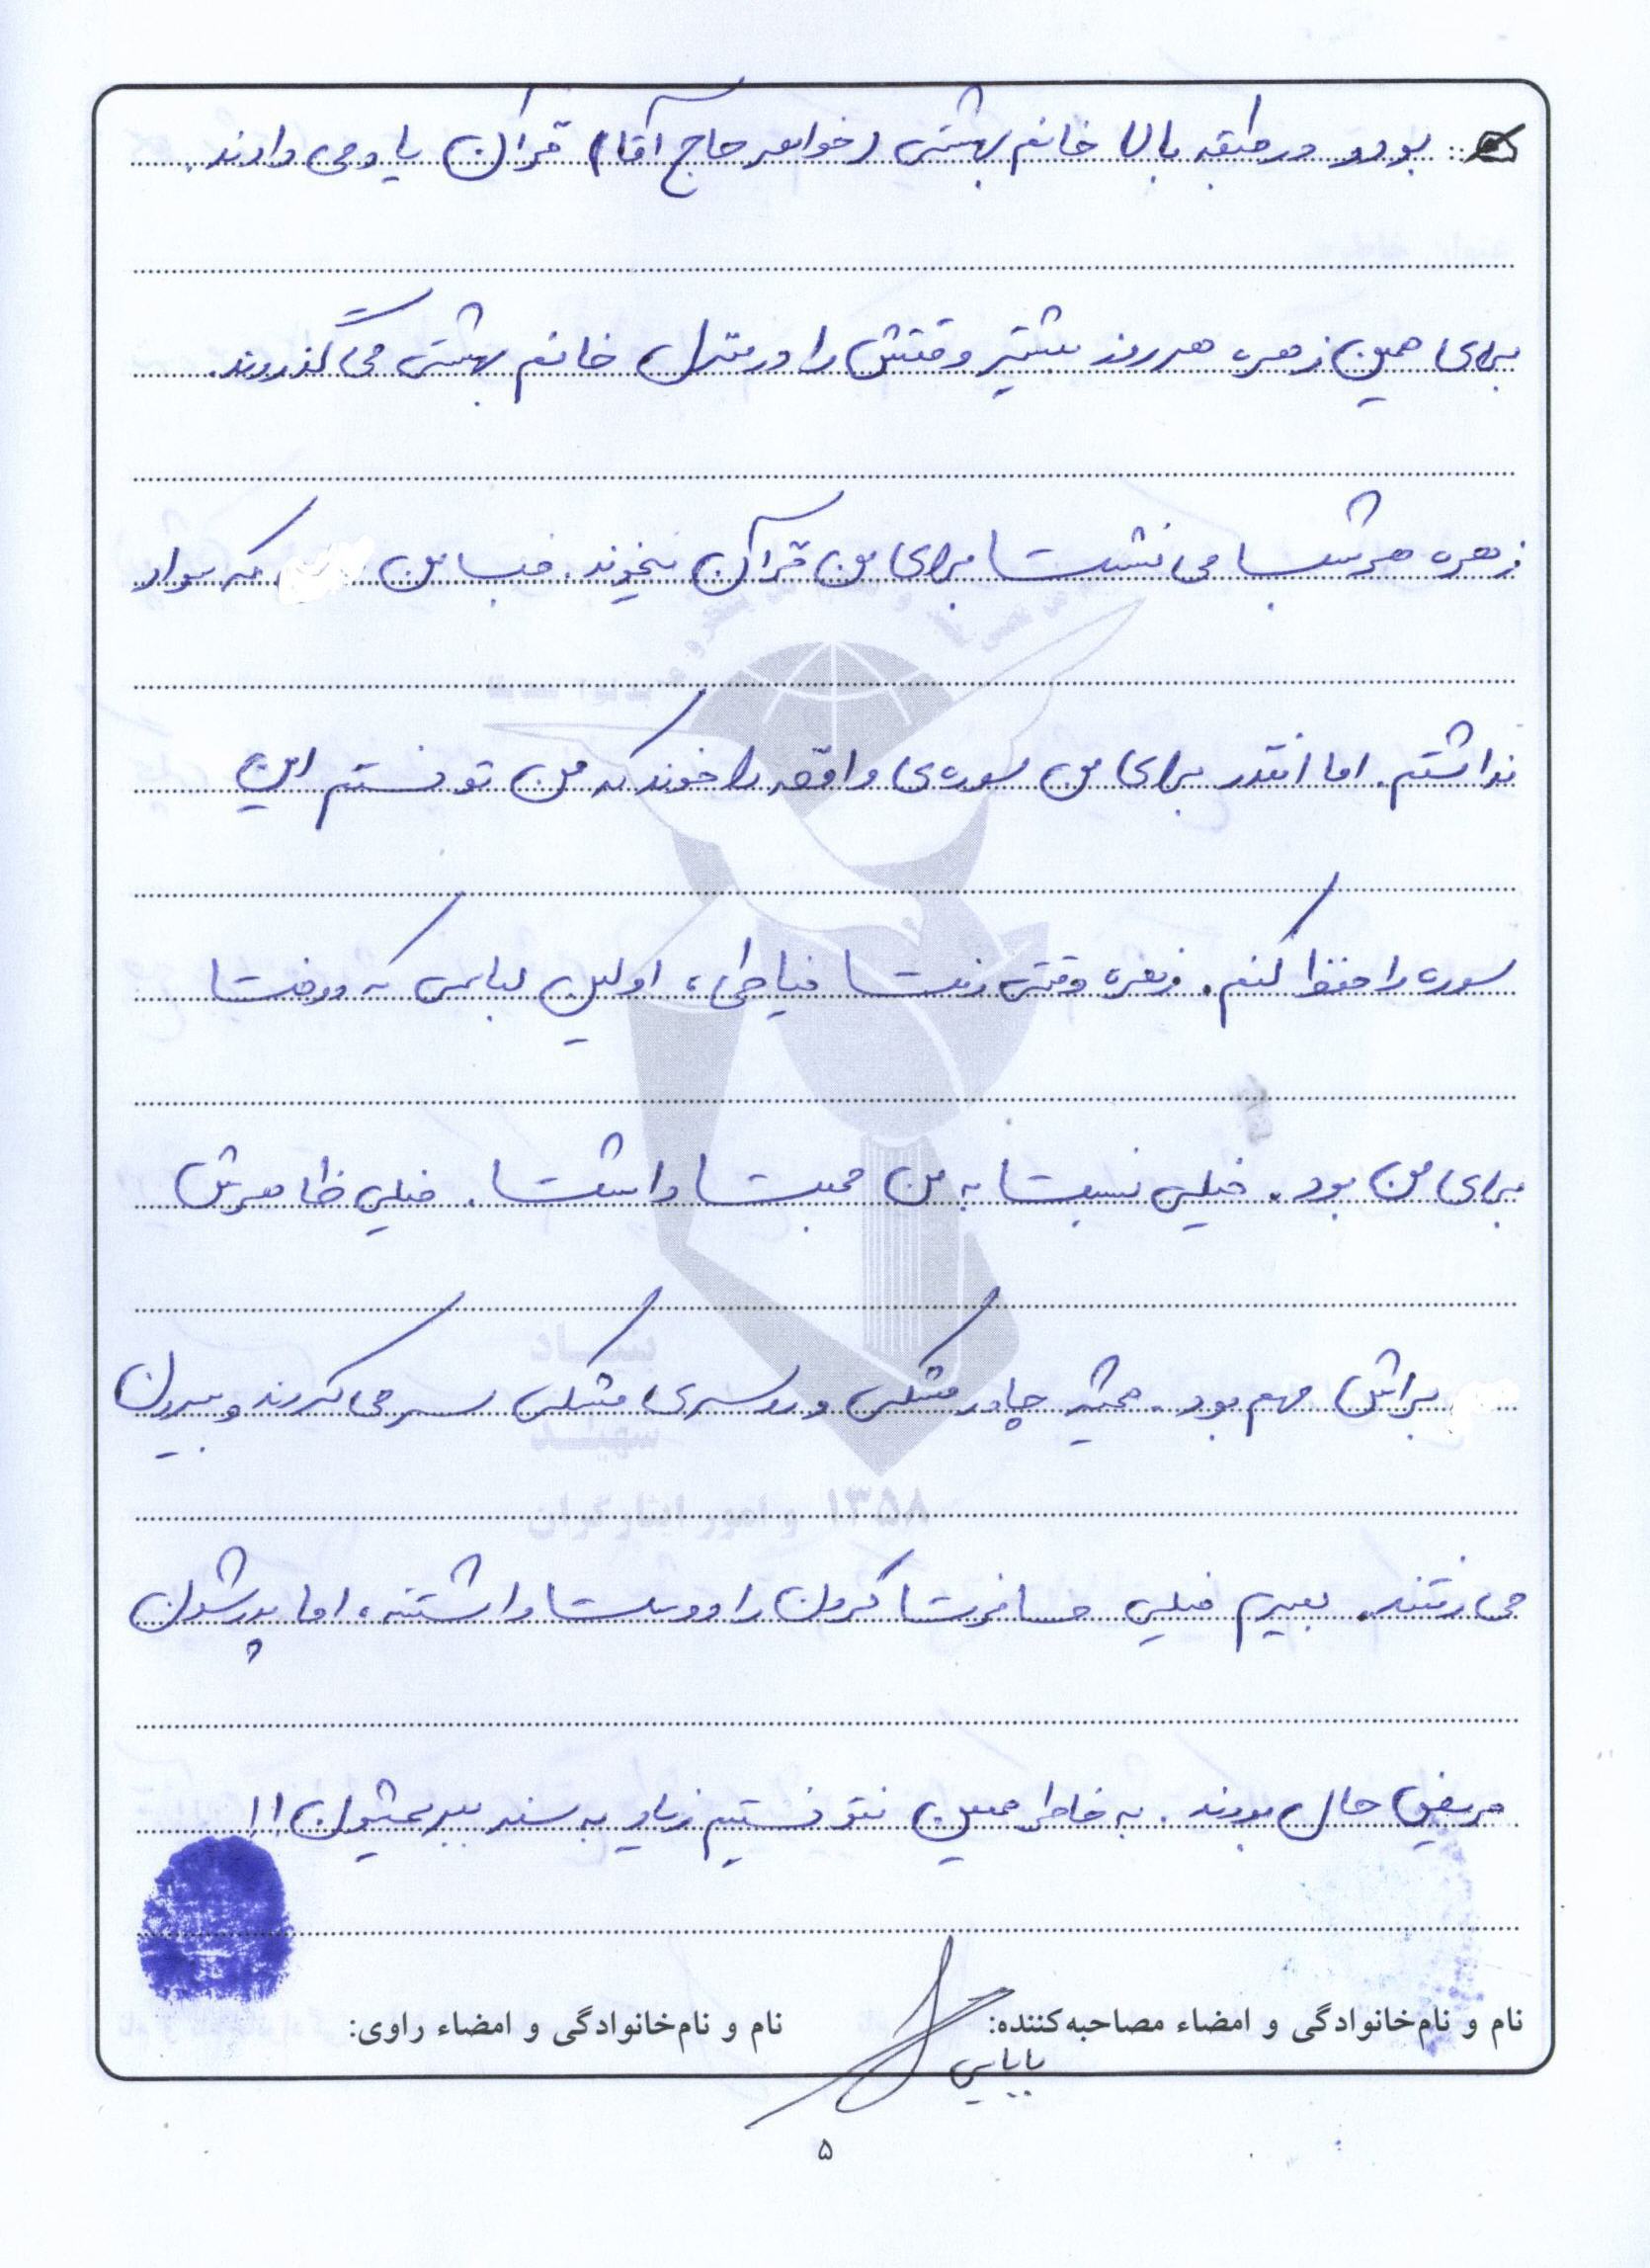 بود و در طبقه بالا خانم بهشتی (خواهر حاج آقا) قرآن یاد می دادند.
برای همین زهره هر روز بیشتر وقتش را در منزل خانم بهشتی می گذروند.
زهره هر شب می نشست برای من قرآن میخوند. خب من که سواد
نداشتم. اما انقدر برای من سوره‌ی واقعه را خوند که من تونستم این
سوره را حفظ کنم. زهره وقتی رفت خیاطی، اولین لباسی که دوخت
برای من بود. خیلی نسبت به من محبت داشت. خیلی ظاهرش
براش مهم بود. همیشه چادر مشکی و روسری مشکی سر می کردند و بیرون
می رفتند. خیلی مسافرت کردن را دوست داشتند، اما پدرشون
مریض حال بودند. به خاطر همین نتونستیم زیاد به سفر ببریمشون!!
نام و نام‌خانوادگی و امضاء مصاحبه‌کننده: نام و نام‌خانوادگی و امضاء راوی:
بابایی
۵
بنیاد
شهید
و امور ایثارگران ۱۳۵۸